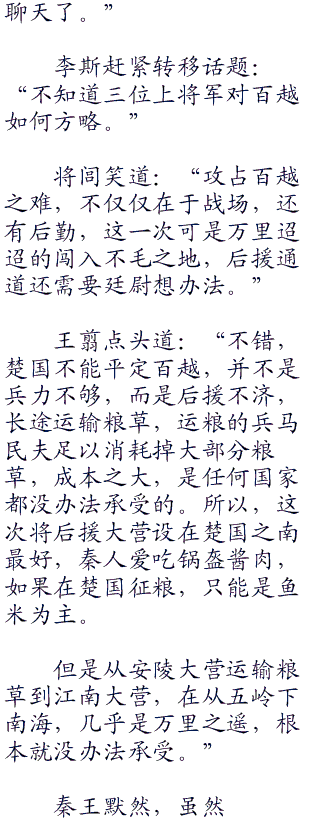 聊天了。”
李斯赶紧转移话题：
“不知道三位上将军对百越
如何方略。”
将闾笑道：“攻占百越
之难，不仅仅在于战场，还
有后勤，这一次可是万里迢
迢的闯入不毛之地，后援通
道还需要廷尉想办法。”
王翦点头道：“不错，
楚国不能平定百越，并不是
兵力不够，而是后援不济，
长途运输粮草，运粮的兵马
民夫足以消耗掉大部分粮
草，成本之大，是任何国家
都没办法承受的。所以，这
次将后援大营设在楚国之南
最好，秦人爱吃锅盔酱肉，
如果在楚国征粮，只能是鱼
米为主。
但是从安陵大营运输粮
草到江南大营，在从五岭下
南海，几乎是万里之遥，根
本就没办法承受。”
秦王默然，虽然